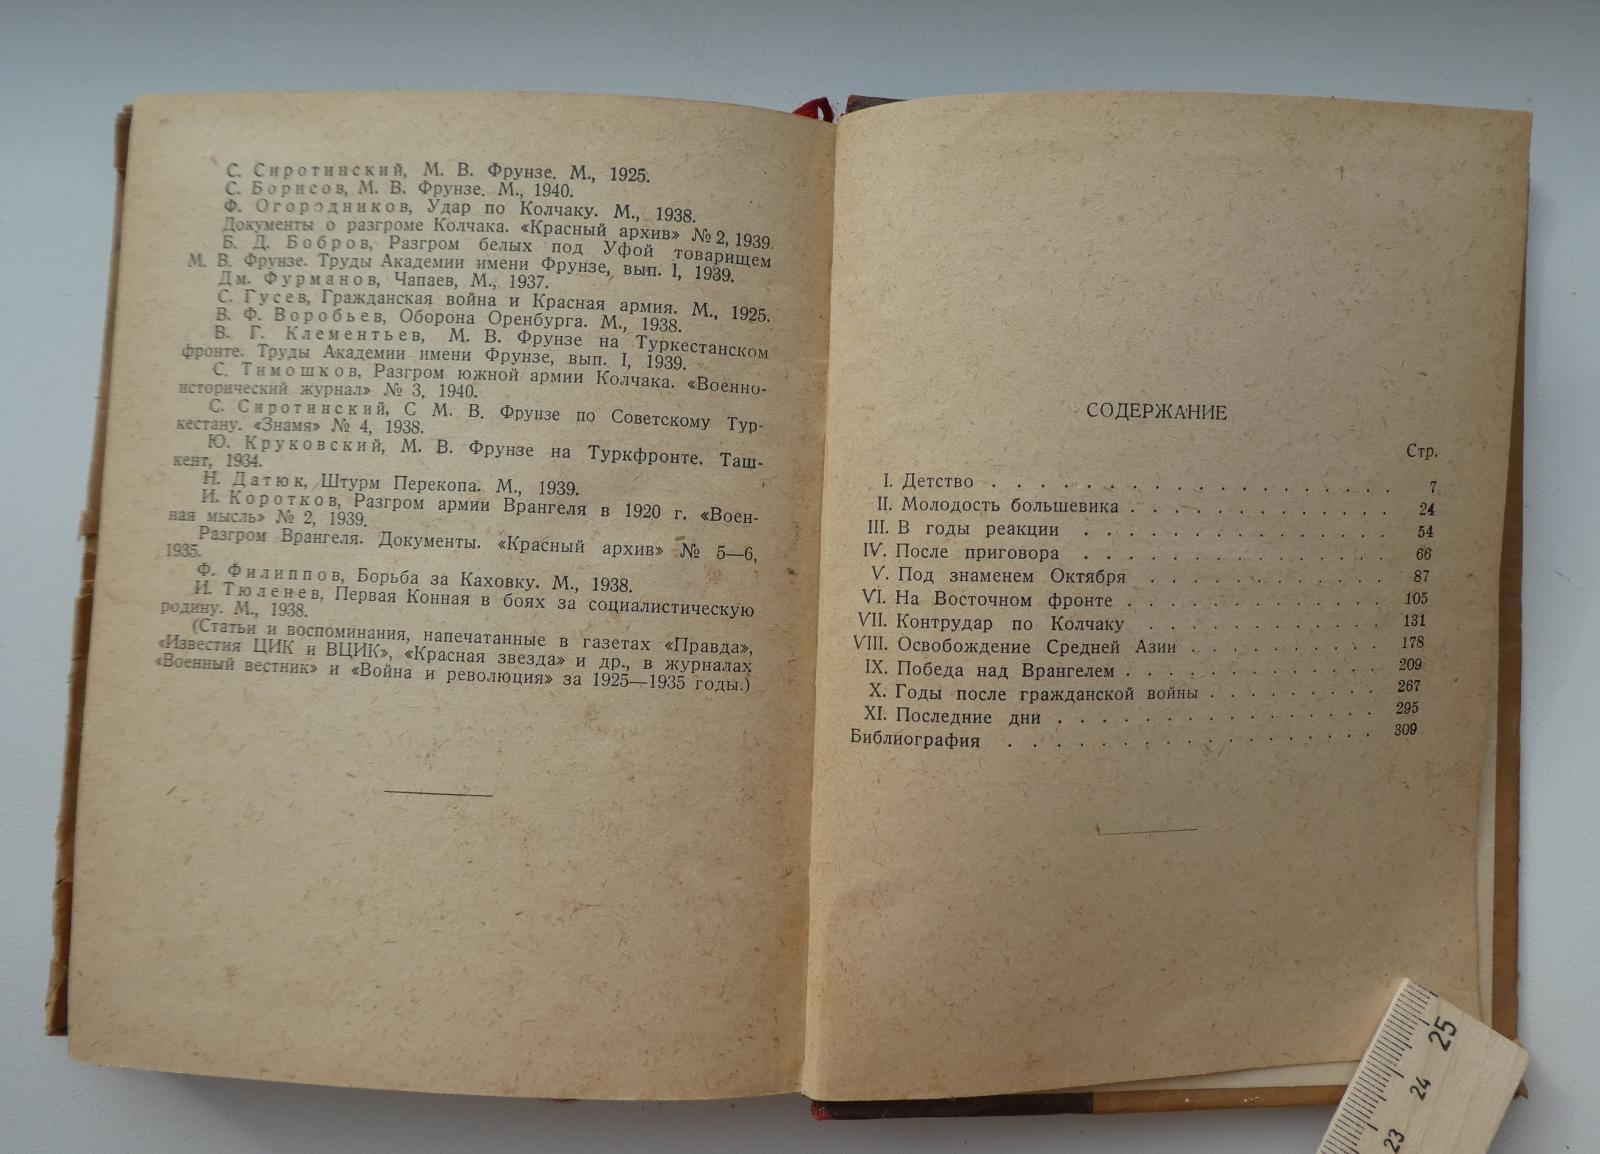 С. Сиротинский, М. В. Фрунзе. М., 1925.
С. Борисов, М. В. Фрунзе. М., 1940.
Ф. Огородников, Удар по Колчаку. М., 1938.
Документы о разгроме Колчака. «Красный архив» № 2, 1939.
Б. Д. Бобров, Разгром белых под Уфой товарищем
М. В. Фрунзе. Труды Академии имени Фрунзе, вып. I, 1939.
Дм. Фурманов, Чапаев, М., 1937.
С. Гусев, Гражданская война и Красная армия. М., 1925.
В. Ф. Воробьев, Оборона Оренбурга. М., 1938.
В. Г. Клементьев, М. В. Фрунзе на Туркестанском
фронте. Труды Академии имени Фрунзе, вып. I, 1939.
С. Тимошков, Разгром южной армии Колчака. «Военно-
исторический журнал» № 3, 1940.
С. Сиротинский, С М. В. Фрунзе по Советскому Тур-
кестану. «Знамя» № 4, 1938.
Ю. Круковский, М. В. Фрунзе на Туркфронте. Таш-
кент, 1934.
Н. Датюк, Штурм Перекопа. М., 1939.
И. Коротков, Разгром армии Врангеля в 1920 г. «Воен-
ная мысль» № 2, 1939.
Разгром Врангеля. Документы. «Красный архив» № 5—6,
1935.
Ф. Филиппов, Борьба за Каховку. М., 1938.
И. Тюленев, Первая Конная в боях за социалистическую
родину. М., 1938.
(Статьи и воспоминания, напечатанные в газетах «Правда»,
«Известия ЦИК и ВЦИК», «Красная звезда» и др., в журналах
«Военный вестник» и «Война и революция» за 1925—1935 годы.)
СОДЕРЖАНИЕ
Стр.
I. Детство . . . . . . . . . . . . . . . . . . 7
II. Молодость большевика . . . . . . . . . . . . 24
III. В годы реакции . . . . . . . . . . . . . . 54
IV. После приговора . . . . . . . . . . . . . . 66
V. Под знаменем Октября . . . . . . . . . . . 87
VI. На Восточном фронте . . . . . . . . . . . . 105
VII. Контрудар по Колчаку . . . . . . . . . . . 131
VIII. Освобождение Средней Азии . . . . . . . . . 178
IX. Победа над Врангелем . . . . . . . . . . . . 209
X. Годы после гражданской войны . . . . . . . . 267
XI. Последние дни . . . . . . . . . . . . . . . 295
Библиография . . . . . . . . . . . . . . . . . 309
23 24 25